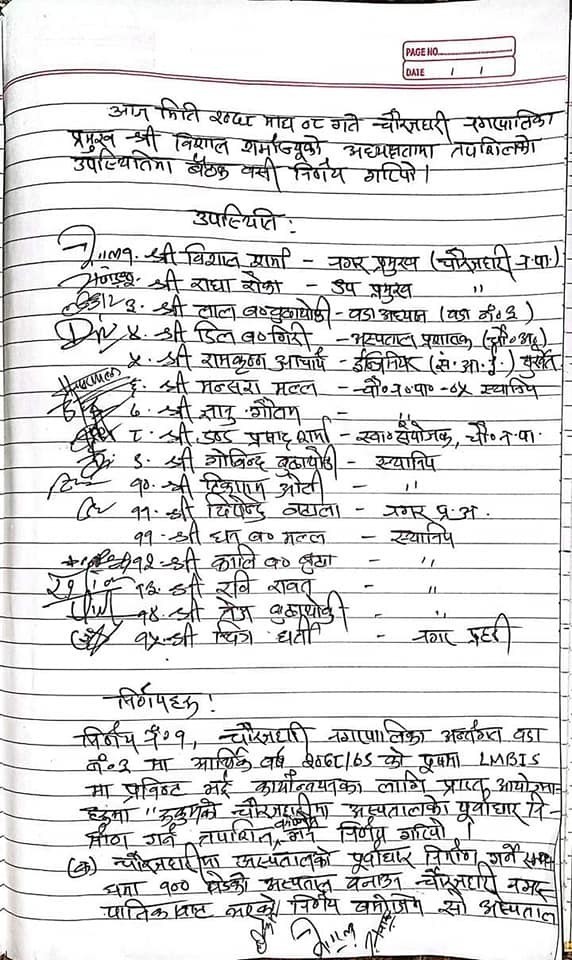 PAGE NO.
DATE / /
आज मिति २०७८ माघ ०८ गते चौरजहारी नगरपालिका
प्रमुख श्री विशाल शर्माज्यूको अध्यक्षतामा तपशिलको
उपस्थितिमा बैठक वसी निर्णय गरियो।
उपस्थिति:
१. श्री विशाल शर्मा - नगर प्रमुख (चौरजहारी न.पा.)
श्री राधा रोका - उप प्रमुख "
३. श्री लाल ब० बुढाथोकी - वडा अध्यक्ष (वडा नं. ३)
४. श्री डिल ब० गिरी - अस्पताल प्रशासक
५. श्री रामकृष्ण आचार्य - ईन्जिनियर (सं. आ. ई.) सुर्खेत
६. श्री मन्सरा मल्ल - चौ० न० पा० -०५ स्थानिय
७. श्री गौतम - "
८. श्री प्रसाद शर्मा - स्वा० संयोजक, चौ० न. पा.
९. श्री गोविन्द बुढाथोकी - स्थानिय
१०. श्री टिकाराम ओली - "
११. श्री दिपेन्द्र - नगर प्र. अ.
११. श्री धन ब० मल्ल - स्थानिय
१२. श्री ब० बुढा - "
१३. श्री रवि रावत - "
१४. श्री तेज बुढाथोकी - "
१५. श्री घर्ती - नगर प्रहरी
निर्णयहरु:
निर्णय नं० १, चौरजहारी नगरपालिका अन्तर्गत वडा
नं० ३ मा आर्थिक वर्ष २०७८/७९ को LMBIS
मा प्रविष्ट भई कार्यान्वयनका लागि प्राप्त आयोजना
हरुमा "रुकुमको चौरजहारीमा अस्पतालका पूर्वाधार नि-
र्माण गर्न तपाशिल निर्णय गरियो।
(क) चौरजहारीमा अस्पतालको पूर्वाधार निर्माण गर्ने सम्ब-
न्धमा १०० बेडको अस्पताल चौरजहारी नगर
पालिकाबाट निर्णय बमोजिम सो अस्पताल